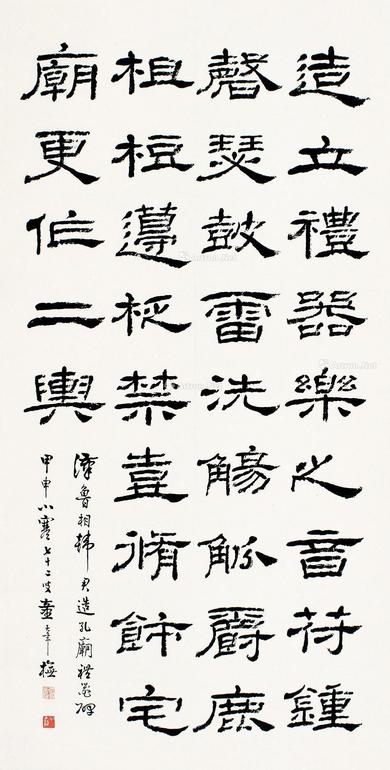 造立禮器樂之音苻鍾
磬瑟鼓雷洗觴觚爵鹿
柤梪籩柉禁壺脩飾宅
廟更作二輿
漢魯相韓君造孔廟禮器碑
甲申小寒七十二叟